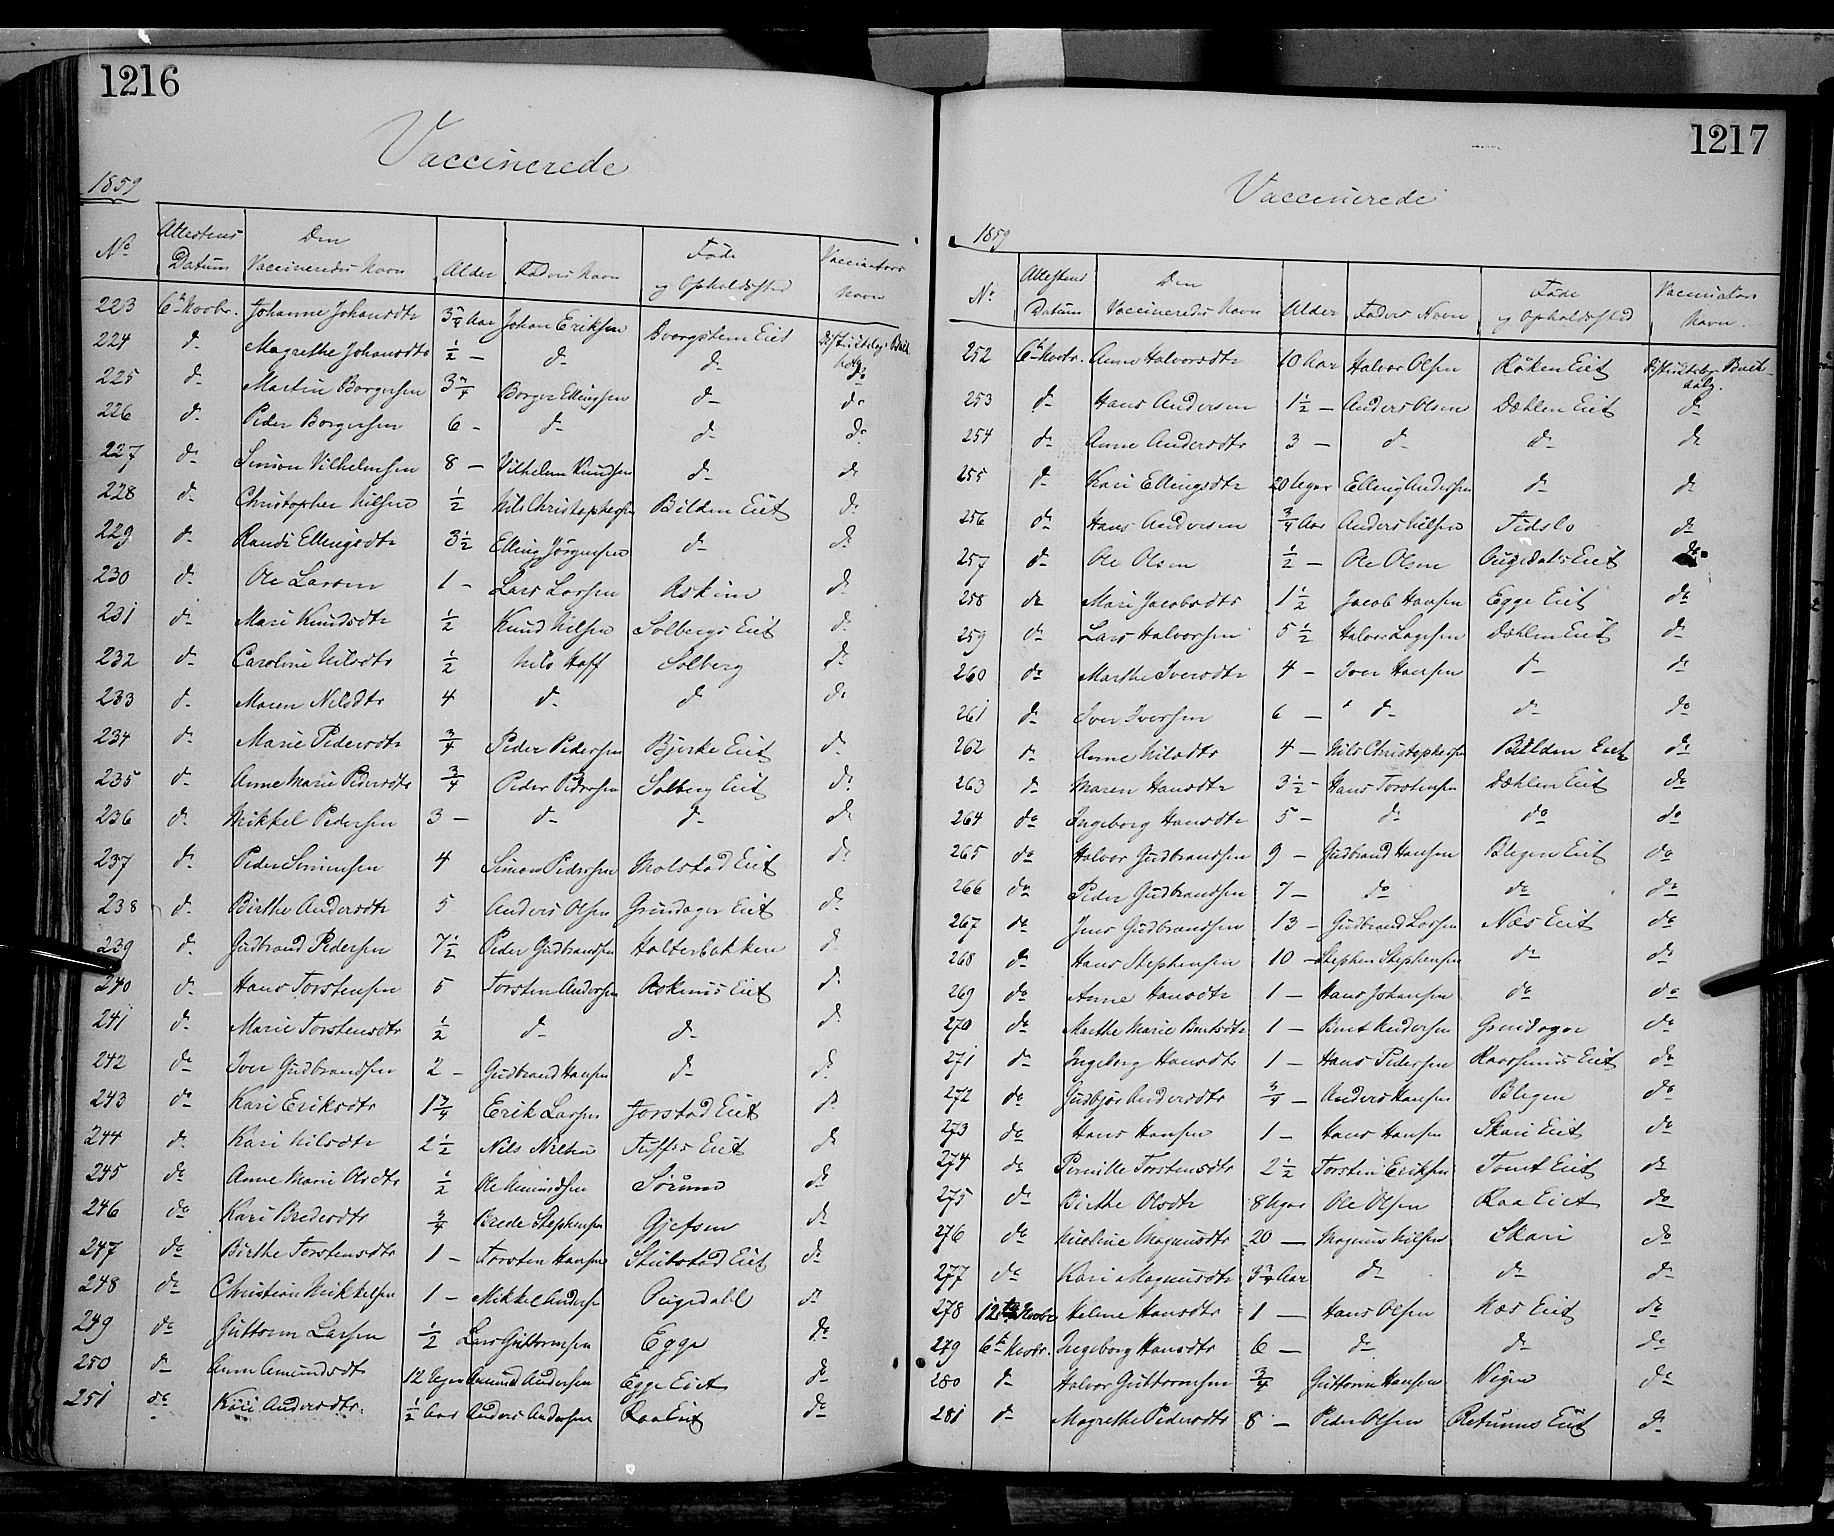 1216
Vaccinerede
1859
No Attestens Datum Den Vaccineredes Navn Alder Faders Navn Føde og Opholdssted Vaccinatørs Navn
223 6te Novbr. Johanne Johansdtr 3 3/4 Aar Johan Eriksen Dvergsten Eiet
224 do Magrethe Johansdtr 1/2 - do do do
225 do Martin Borgersen 3 3/4 Borger Ellingsen do do
226 do Peder Borgersen 6 - do do do
227 do Simon Vilhelmsen 8 - Vilhelm Knudsen do do
228 do Christopher Nilsen 1/2 Nils Christophersen Bilden Eiet do
229 do Randi Ellingsdtr 3 1/2 Elling Jørgensen do do
230 do Ole Larsen 1 - Lars Larsen Askim do
231 do Mari Knudsdtr 1/2 Knud Nilsen Solbergs Eiet do
232 do Caroline Nilsdtr 1/2 Nils Hoff Solberg do
233 do Maren Nilsdtr 4 do do do
234 do Marie Pedersdtr 3/4 Peder Pedersen Bjerke Eiet do
235 do Anne Marie Pedersdtr 3/4 Peder Pedersen Solberg Eiet do
236 do Mikkel Pedersen 3 - do do do
237 do Peder Simensen 4 Simon Pedersen Molstad Eiet do
238 do Birthe Andersdtr 5 Anders Olsen Grindager Eiet do
239 do Gudbrand Pedersen 7 1/2 Peder Gudbrandsen Halterbakken do
240 do Hans Torstensen 5 Torsten Andersen Askims Eiet do
241 do Marie Torstensdtr 1/2 do do do
242 do Iver Gudbrandsen 2 - Gudbrand Hansen do do
243 do Kari Eriksdtr 1 3/4 Erik Larsen Jorstad Eiet do
244 do Kari Nilsdtr 2 1/2 Nils Nilsen Tuffts Eiet do
245 do Anne Marie Olsdtr 1/2 Ole Amundsen Sørum do
246 do Kari Bredesdtr 3/4 Brede Stephensen Gjefsen do
247 do Birthe Torstensdtr 1 - Torsten Hansen Stubstad Eiet do
248 do Christian Mikkelsen 1 - Mikkel Andersen do
249 do Guttorm Larsen 1/2 Lars Guttormsen Egge do
250 do Anne Amundsdtr 12 Uger Amund Andersen Egge Eiet do
251 do Kari Andersdtr 1/2 Aar Anders Andersen Raa Eiet do
1217
Vaccinerede
1859
No Attestens Datum Den Vaccineredes Navn Alder Faders Navn Føde og Opholdssted Vaccinatørs Navn.
252 6te Novbr. Anne Halvorsdtr 10 Aar Halvor Olsen Røken Eiet
253 do Hans Andersen 1 1/2 - Anders Olsen Dæhlen Eiet do
254 do Anne Andersdtr 3 - do do do
255 do Kari Ellingsdtr 20 Uger Elling Andersen do do
256 do Hans Andersen 3/4 Aar Anders Nilsen Tidslo do
257 do Ole Olsen 1/2 - Ole Olsen do
258 do Mari Jacobsdtr 1 1/2 Jacob Hansen Egge Eiet do
259 do Lars Halvorsen 5 1/2 Halvor Dæhlen Eiet do
260 do Marthe Iversdtr 4 - Iver Hansen do do
261 do Iver Iversen 6 - do do do
262 do Anne Nilsdtr 4 - Nils Christophersen Bilden Eiet do
263 do Maren Hansdtr 3 1/2 - Hans Torstensen Dæhlen Eiet do
264 do Ingeborg Hansdtr 5 - do do do
265 do Halvor Gudbrandsen 9 - Gudbrand Hansen Blegen Eiet do
266 do Peder Gudbrandsen 7 - do do do
267 do Jens Gudbrandsen 13 - Gudbrand Larsen Næs Eiet do
268 do Hans Stephensen 10 - Stephen Stephensen do do
269 do Anne Hansdtr 1 - Hans Johansen do do
270 do Marthe Marie Berntsdtr 1 - Bernt Andersen Grindager do
271 do Ingeborg Hansdtr 1 - Hans Pedersen Eiet do
272 do Gudbjør Andersdtr 3/4 - Anders Hansen Blegen do
273 do Hans Hansen 1 - Hans Hansen Skari Eiet do
274 do Pernille Torstensdtr 2 1/2 Torsten Eriksen Tomt Eiet do
275 do Birthe Olsdtr 8 Uger Ole Olsen Raa Eiet do
276 do Nicoline Magnusdtr 20 — Magnus Nilsen Skari do
277 do Kari Magnusdtr 3 3/4 Aar do do do
278 12te Novbr Helene Hansdtr 1 — Hans Olsen Næs Eiet do
279 6te Novbr. Ingeborg Hansdtr 6 — do do do
280 do Halvor Guttormsen 3/4 Guttorm Hansen Vigen do
281 do Magrethe Pedersdtr 8 - Peder Olsen Eiet do